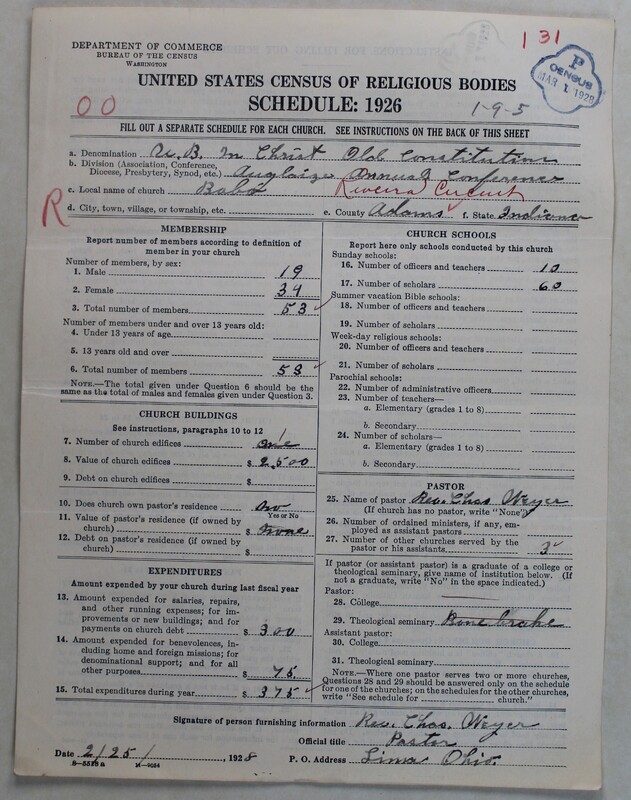 131
DEPARTMENT OF COMMERCE
BUREAU OF THE CENSUS
WASHINGTON
P
CENSUS
MAR 1 1928
UNITED STATES CENSUS OF RELIGIOUS BODIES
SCHEDULE: 1926
00
1-9-5
FILL OUT A SEPARATE SCHEDULE FOR EACH CHURCH. SEE INSTRUCTIONS ON THE BACK OF THIS SHEET
a. Denomination U. B. In Christ Old Constitution
b. Division (Association, Conference, Diocese, Presbytery, Synod, etc.) Auglaize Annual Conference
c. Local name of church Circuit
R
d. City, town, village, or township, etc.
e. County Adams f. State Indiana
MEMBERSHIP
Report number of members according to definition of
member in your church
Number of members, by sex:
1. Male 19
2. Female 34
3. Total number of members 53
Number of members under and over 13 years old:
4. Under 13 years of age
5. 13 years old and over
6. Total number of members 53
NOTE.—The total given under Question 6 should be the
same as the total of males and females given under Question 3.
CHURCH BUILDINGS
See instructions, paragraphs 10 to 12
7. Number of church edifices one 1
8. Value of church edifices $ 2,500
9. Debt on church edifices $
10. Does church own pastor's residence no
Yes or No
11. Value of pastor's residence (if owned by
church) $ none
12. Debt on pastor's residence (if owned by
church) $
EXPENDITURES
Amount expended by your church during last fiscal year
13. Amount expended for salaries, repairs,
and other running expenses; for im-
provements or new buildings; and for
payments on church debt $ 300
14. Amount expended for benevolences, in-
cluding home and foreign missions; for
denominational support; and for all
other purposes $ 75
15. Total expenditures during year $ 375
CHURCH SCHOOLS
Report here only schools conducted by this church
Sunday schools:
16. Number of officers and teachers 10
17. Number of scholars 60
Summer vacation Bible schools:
18. Number of officers and teachers
19. Number of scholars
Week-day religious schools:
20. Number of officers and teachers
21. Number of scholars
Parochial schools:
22. Number of administrative officers
23. Number of teachers—
a. Elementary (grades 1 to 8)
b. Secondary
24. Number of scholars—
a. Elementary (grades 1 to 8)
b. Secondary
PASTOR
25. Name of pastor Rev. Chas Weyer
(If church has no pastor, write "None")
26. Number of ordained ministers, if any, em-
ployed as assistant pastors
27. Number of other churches served by the
pastor or his assistants 3
If pastor (or assistant pastor) is a graduate of a college or
theological seminary, give name of institution below. (If
not a graduate, write "No" in the space indicated.)
Pastor:
28. College
29. Theological seminary
Assistant pastor:
30. College
31. Theological seminary
NOTE.—Where one pastor serves two or more churches,
Questions 28 and 29 should be answered only on the schedule
for one of the churches; on the schedules for the other churches,
write "See schedule for church."
Signature of person furnishing information Rev. Chas. Weyer
Official title Pastor
Date 2/25/, 1928 P. O. Address Lima Ohio.
8-5528a M-9064